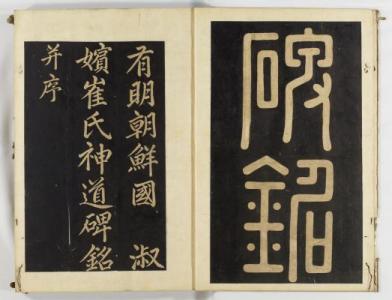 碑銘
有明朝鮮國 淑
嬪崔氏神道碑銘
并序